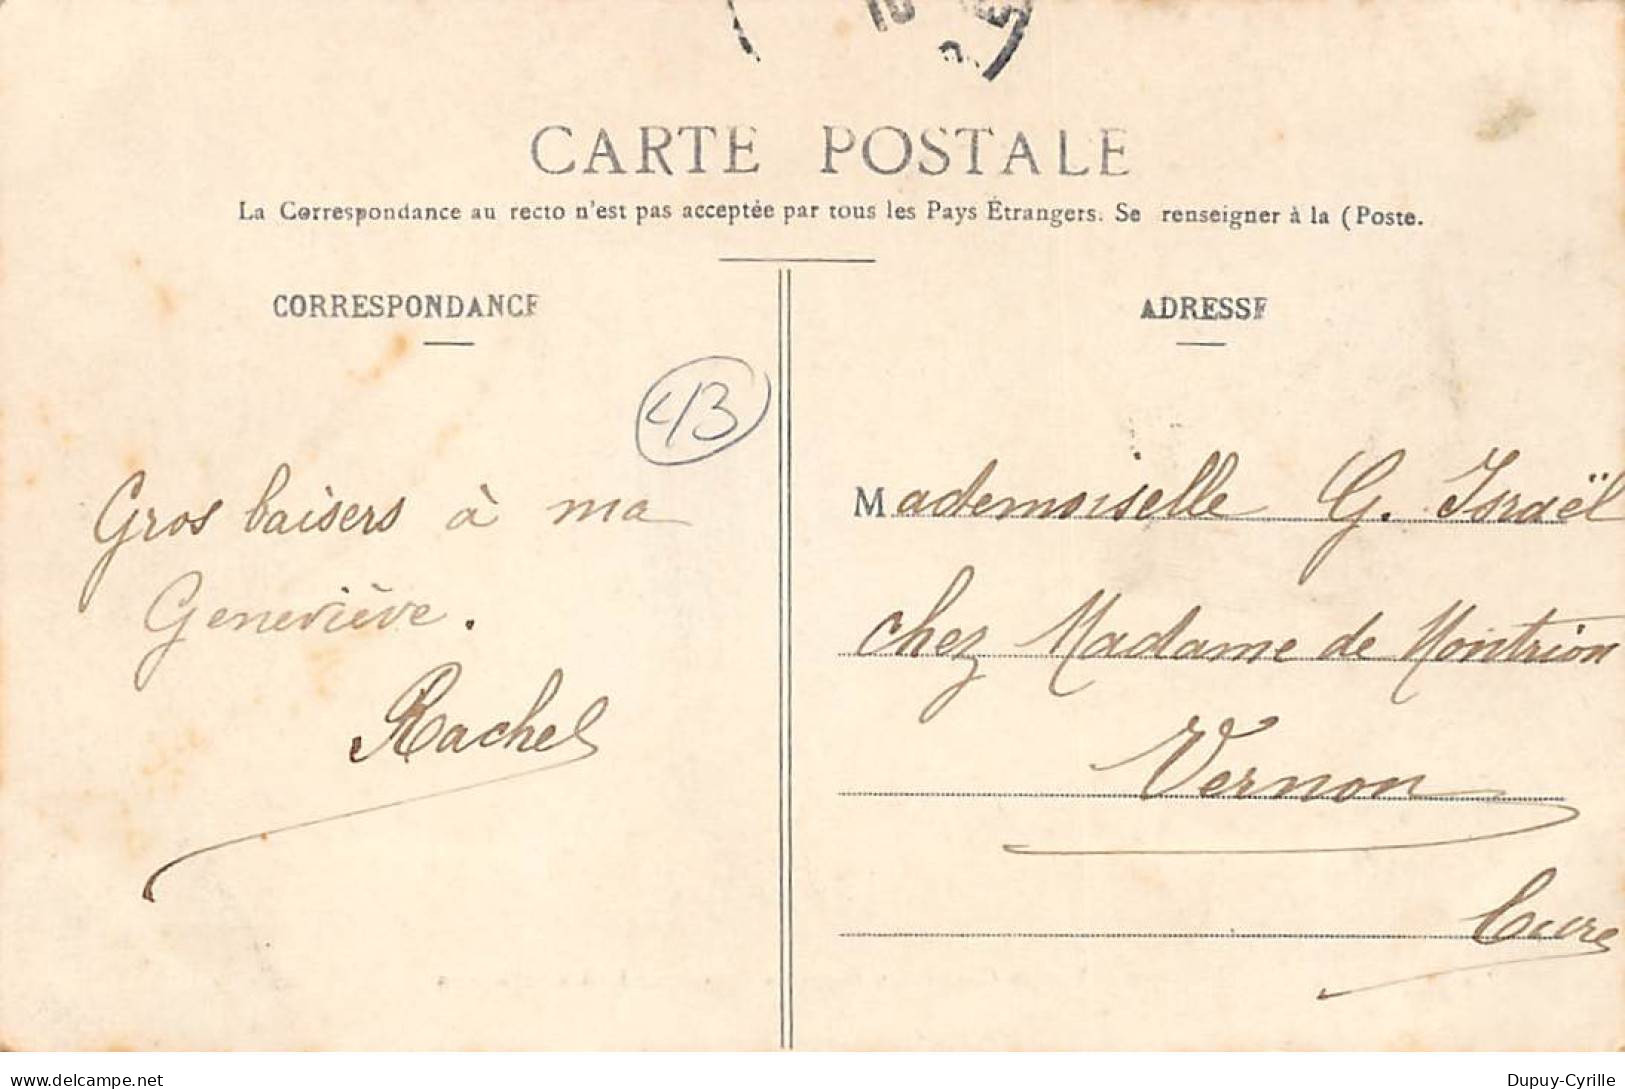 CARTE POSTALE
La Correspondance au recto n'est pas acceptée par tous les Pays Étrangers. Se renseigner à la (Poste.
CORRESPONDANCE
ADRESSE
43
Gros baisers à ma
Geneviève.
Rachel
Mademoiselle G. Israël
chez Madame de Montrion
Vernon
Eure
www.delcampe.net
Dupuy-Cyrille